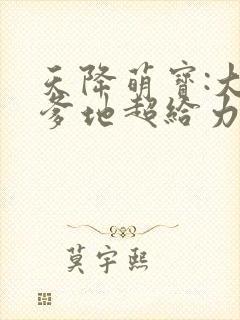 天降萌寶:大
爹地超給力
莫宇熙